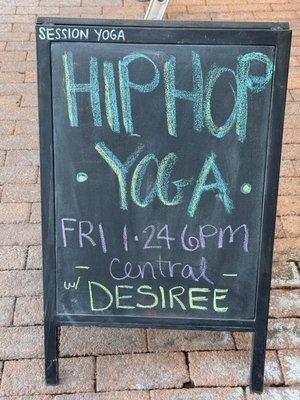 SESSION YOGA
HIP HOP
YOGA
FRI 1·24 @ 6pm
- central -
w/ DESIREE